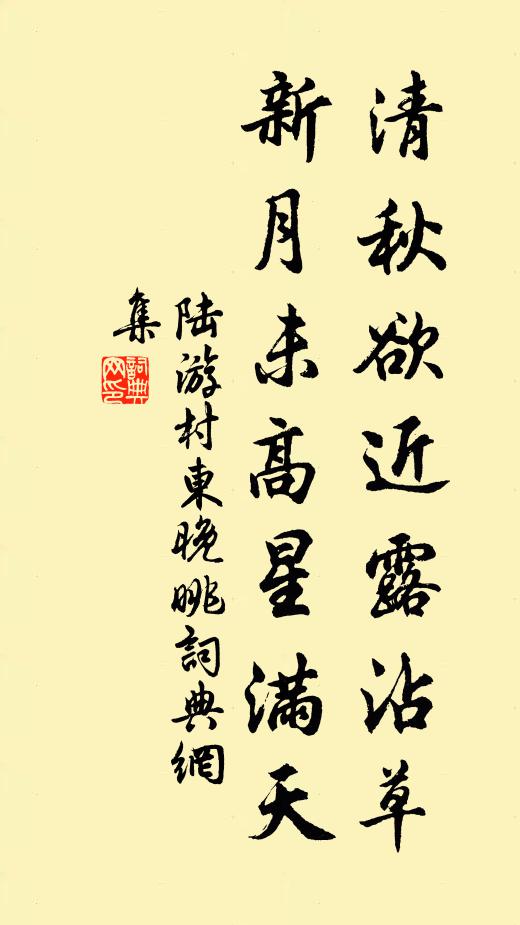 清秋欲近露沾草
新月未高星滿天
陆游村東晚眺詞典網
集
詞典网印